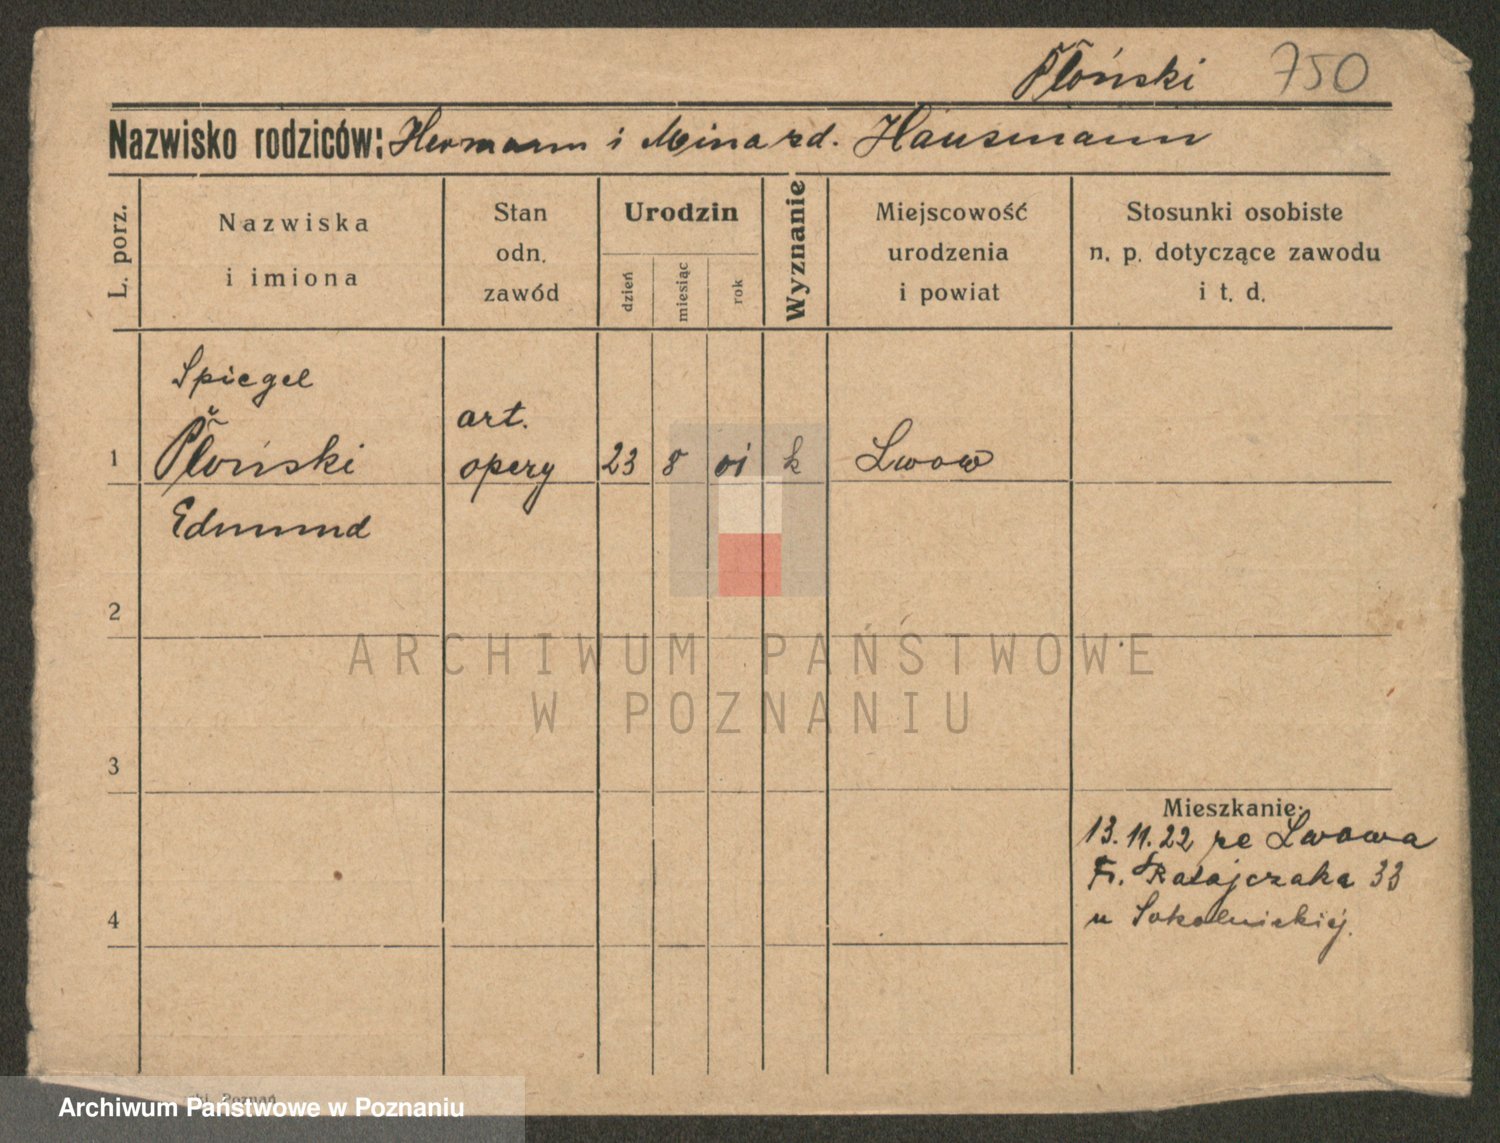 Płoński 750
Nazwisko rodziców: Hermann i Mina zd. Hausmann
L. porz.
Nazwiska
i imiona
Stan
odn.
zawód
Urodzin
dzień
miesiąc
rok
Wyznanie
Miejscowość
urodzenia
i powiat
Stosunki osobiste
n. p. dotyczące zawodu
i t. d.
Spiegel
1 Płoński art. opery 23 8 01 k Lwow
Edmund
2
3
Mieszkanie:
13.11.22 ze Lwowa
Fr. Ratajczaka 33
4 u Sokolnickiej.
ARCHIWUM PAŃSTWOWE
W POZNANIU
Archiwum Państwowe w Poznaniu